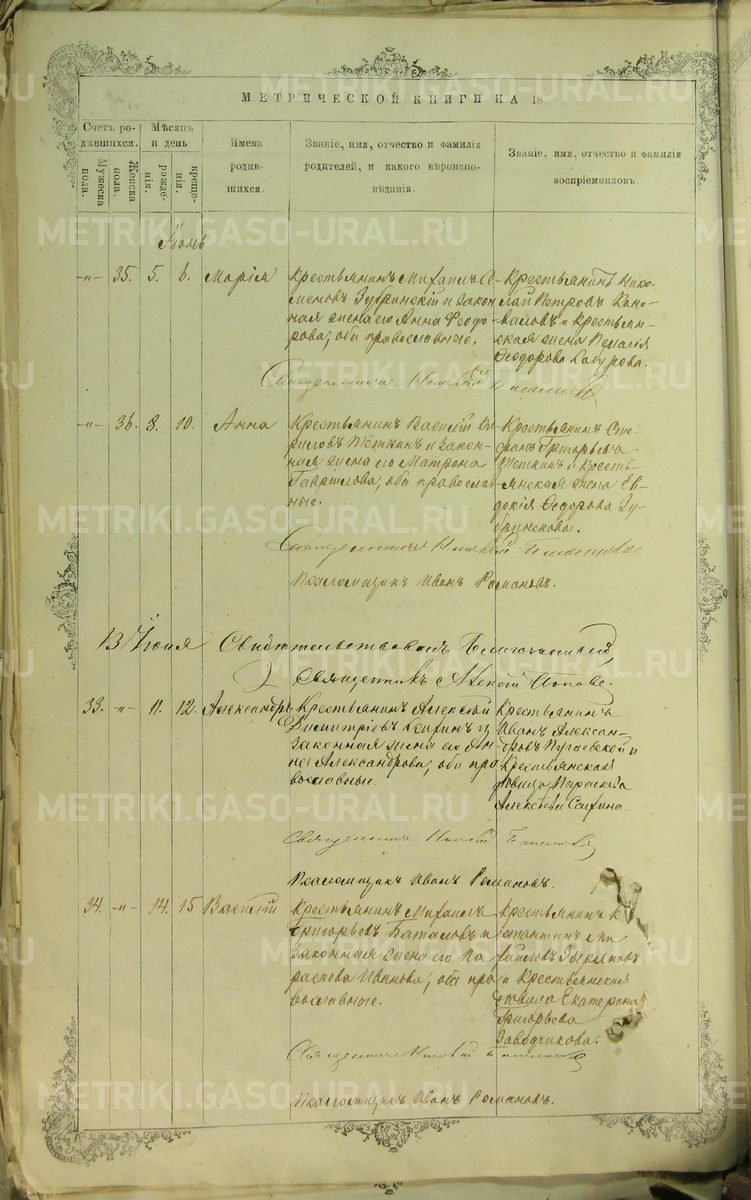 МЕТРИЧЕСКОЙ КНИГИ НА 18
Счетъ ро-
дившихся.
Мужеска
пола.
Женска
пола.
Мѣсяцъ
и день
рожде-
нія.
креще-
нія.
Имена
родив-
шихся.
Званіе, имя, отчество и фамилія
родителей, и какого вѣроиспо-
вѣданія.
Званіе, имя, отчество и фамилія
воспріемниковъ.
Іюнь
-"- 35. 5. 6. Марія
Крестьянинъ Михаилъ Се-
меновъ Зубринскій и закон
ная жена его Анна Ѳеодо-
рова, оба православные.
Крестьянинъ Нико-
лай Петровъ Коно-
валовъ и крестьян-
ская жена Пелагія
Ѳеодорова
Священникъ
-"- 36. 8. 10. Анна
Крестьянинъ Василій Ки
риловъ Теткинъ и закон-
ная жена его Матрона
Гаврилова, оба православ
ные.
Крестьянинъ Сте-
фанъ Григорьевъ
Теткинъ и кресть-
янская жена Ев-
докія Ѳеодорова Зу-
бринскова.
Священникъ
Псаломщикъ Иванъ Романовъ.
13 Іюня Свидѣтельствовалъ Благочинный,
Священникъ Алексій Поповъ.
33. -"- 11. 12. Александръ
Крестьянинъ Алексѣй
Димитріевъ и
законная жена его Ан-
на Александрова, оба пра
вославные.
Крестьянинъ
Иванъ Алексан-
дровъ Пугаевской и
Крестьянская
дѣвица
Алексѣева
Священникъ
Псаломщикъ Иванъ Романовъ.
34. -"- 14. 15 Василій
Крестьянинъ Михаилъ
Григорьевъ Баталовъ и
законная жена его Па
раскева Иванова, оба пра
вославные.
Крестьянинъ К
стантинъ Ми
хайловъ
и Крестьянская
дѣвица Екатерина
Григорьева
Заводчикова.
Священникъ
Псаломщикъ Иванъ Романовъ.
METRIKI.GASO-URAL.RU